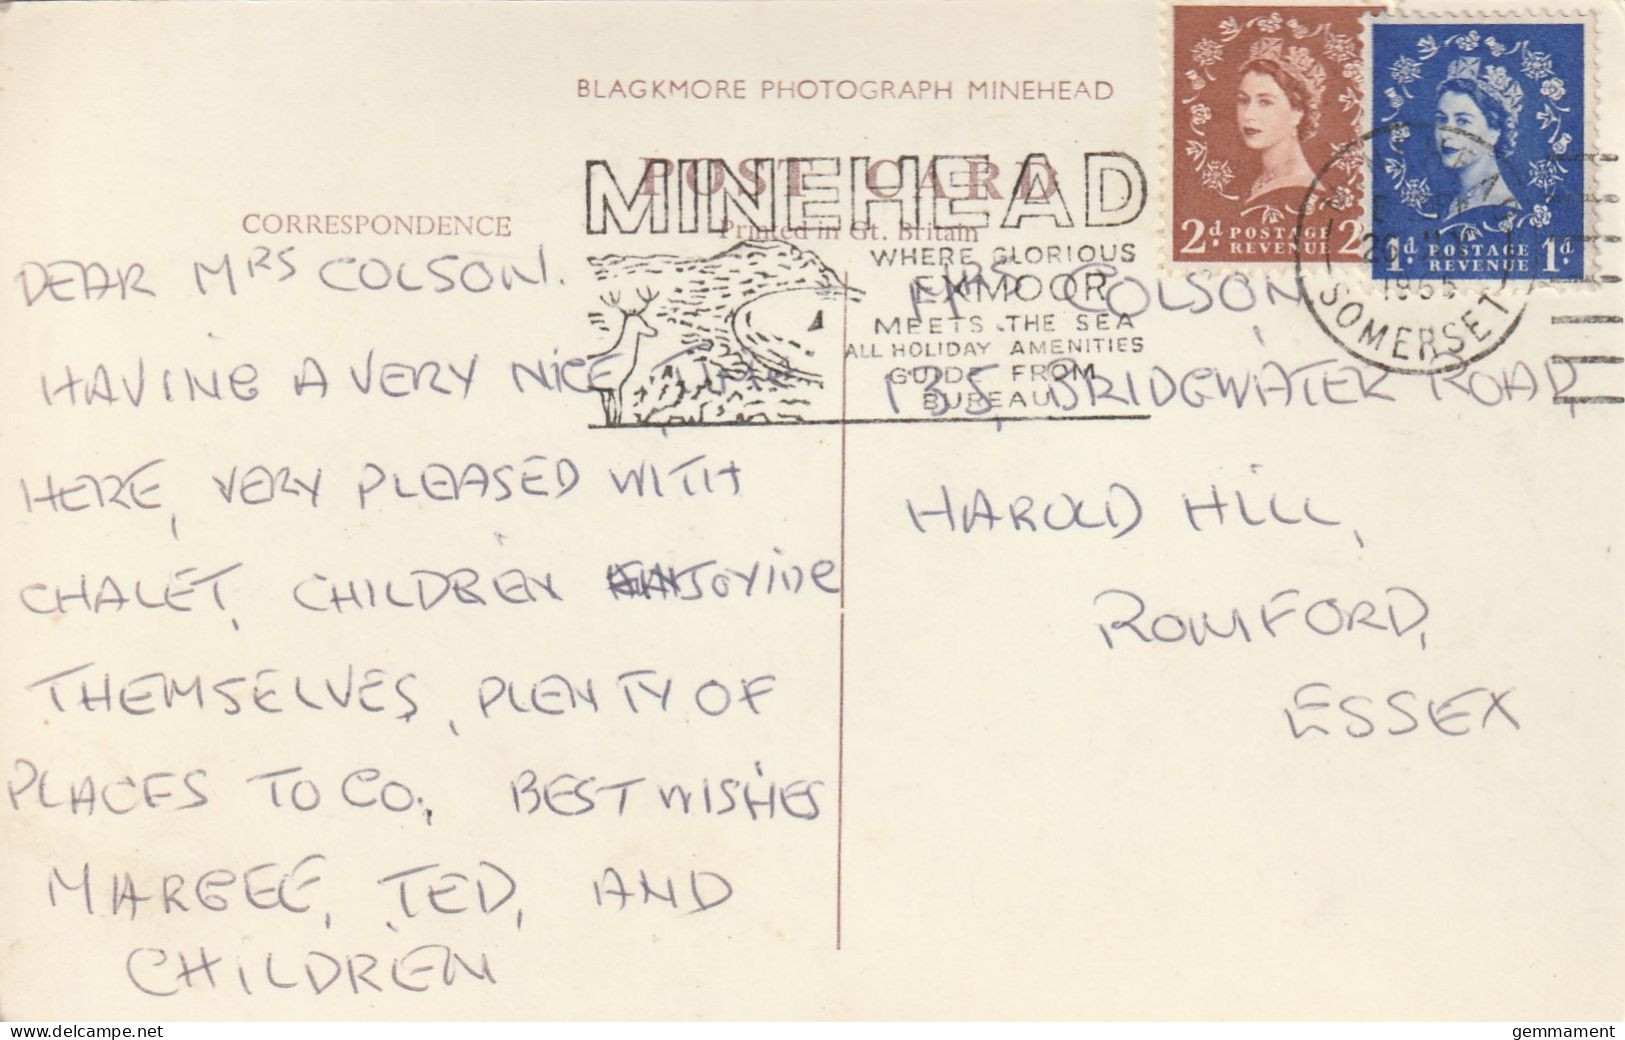 BLACKMORE PHOTOGRAPH MINEHEAD
POST CARD
Printed in Gt. Britain
CORRESPONDENCE
MINEHEAD
WHERE GLORIOUS
EXMOOR
MEETS THE SEA
ALL HOLIDAY AMENITIES
GUIDE FROM
BUREAU
2d. POSTAGE REVENUE 2
1d. POSTAGE REVENUE 1d.
SOMERSET
DEAR MRS COLSON.
HAVING A VERY NICE TIME
HERE, VERY PLEASED WITH
CHALET, CHILDREN ENJOYING
THEMSELVES, PLENTY OF
PLACES TO GO., BEST WISHES
MARGEE, TED, AND
CHILDREN
MRS COLSON,
135, BRIDGWATER ROAD,
HAROLD HILL,
ROMFORD,
ESSEX
gemmament